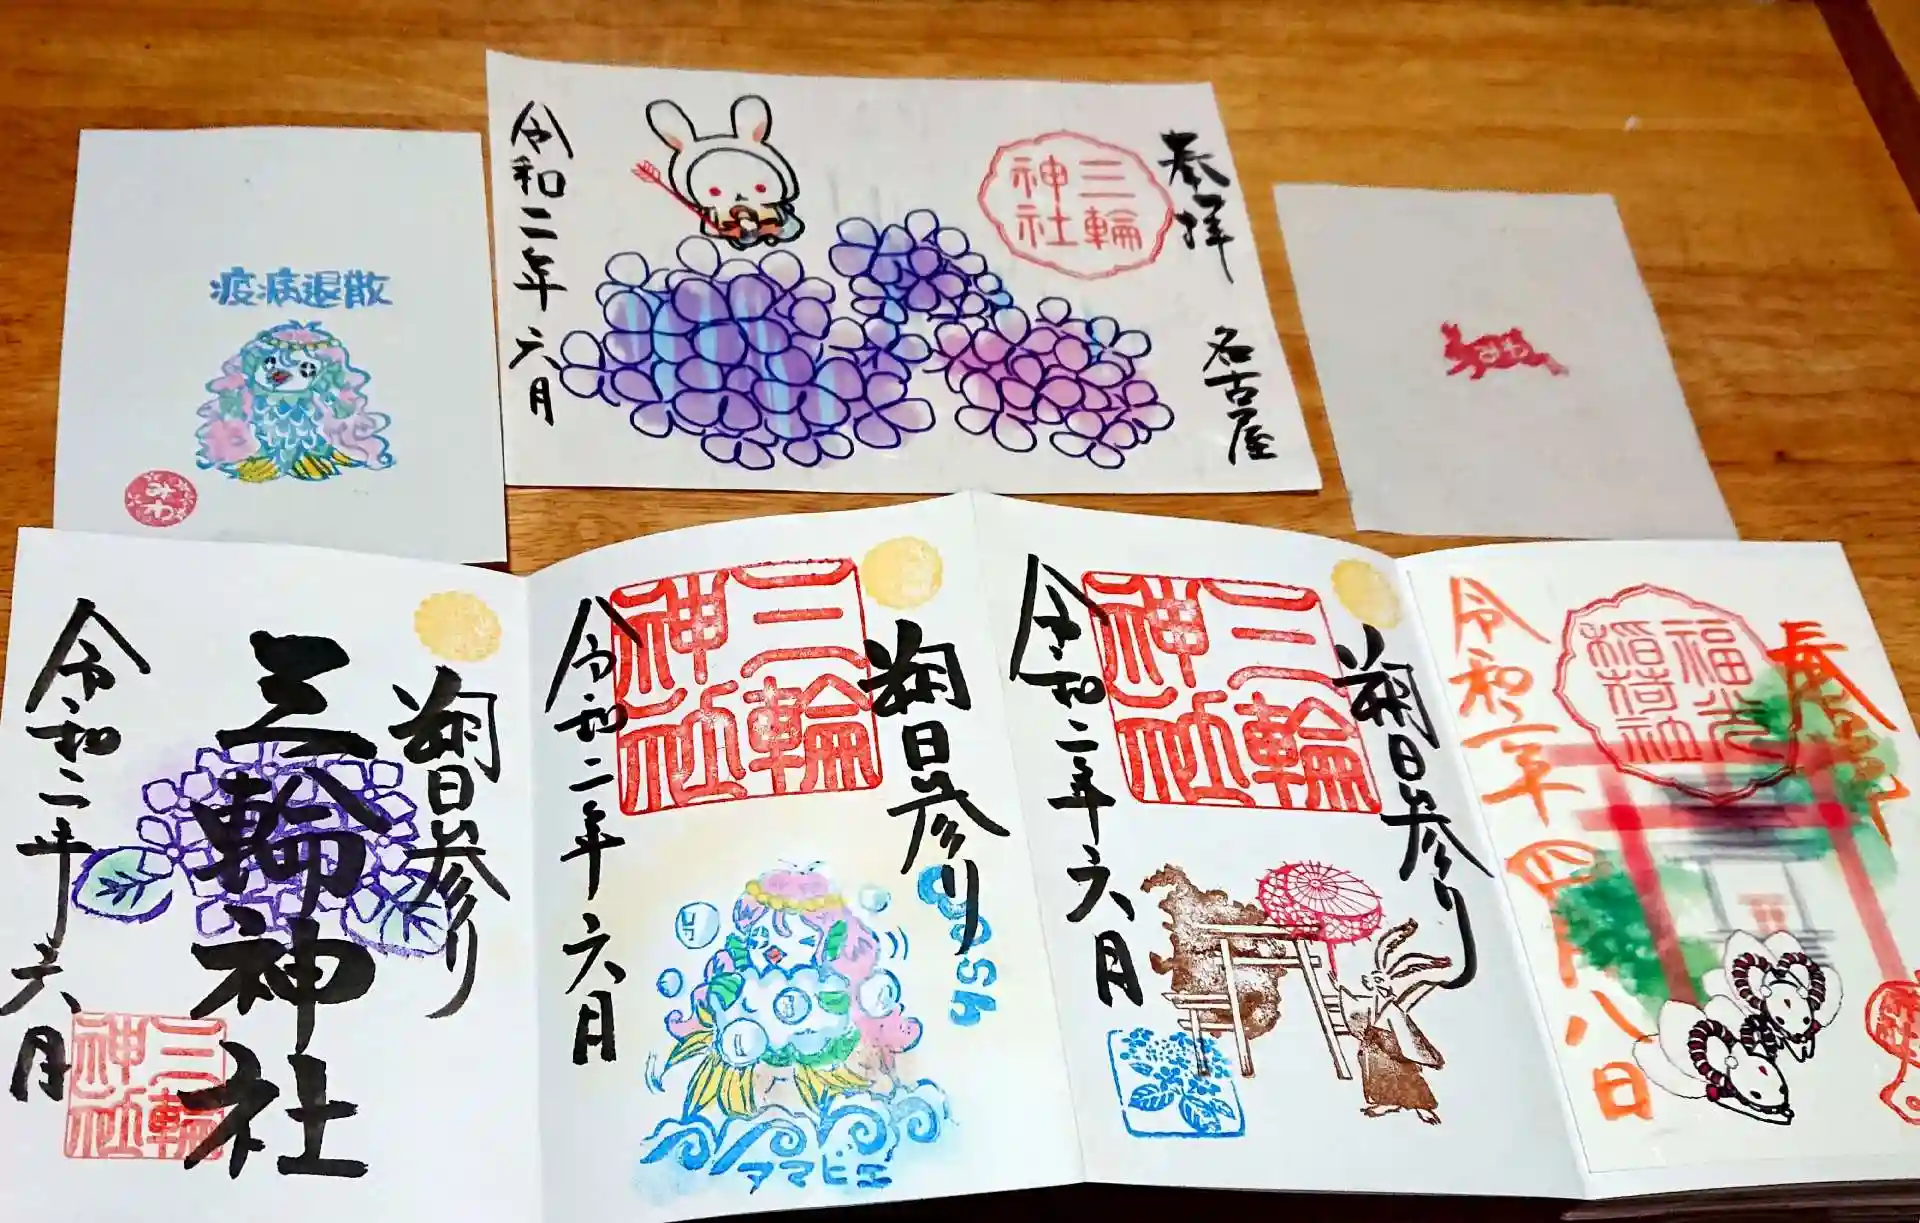 疫病退散
みわ
奉拝
三輪
神社
名古屋
令和二年六月
みわ
鞠日参り
三輪神社
令和二年六月
三輪
神社
鞠日参り
三輪
神社
令和二年六月
アマビエ
鞠日参り
三輪
神社
令和二年六月
福光
稲荷社
令和二年四月八日